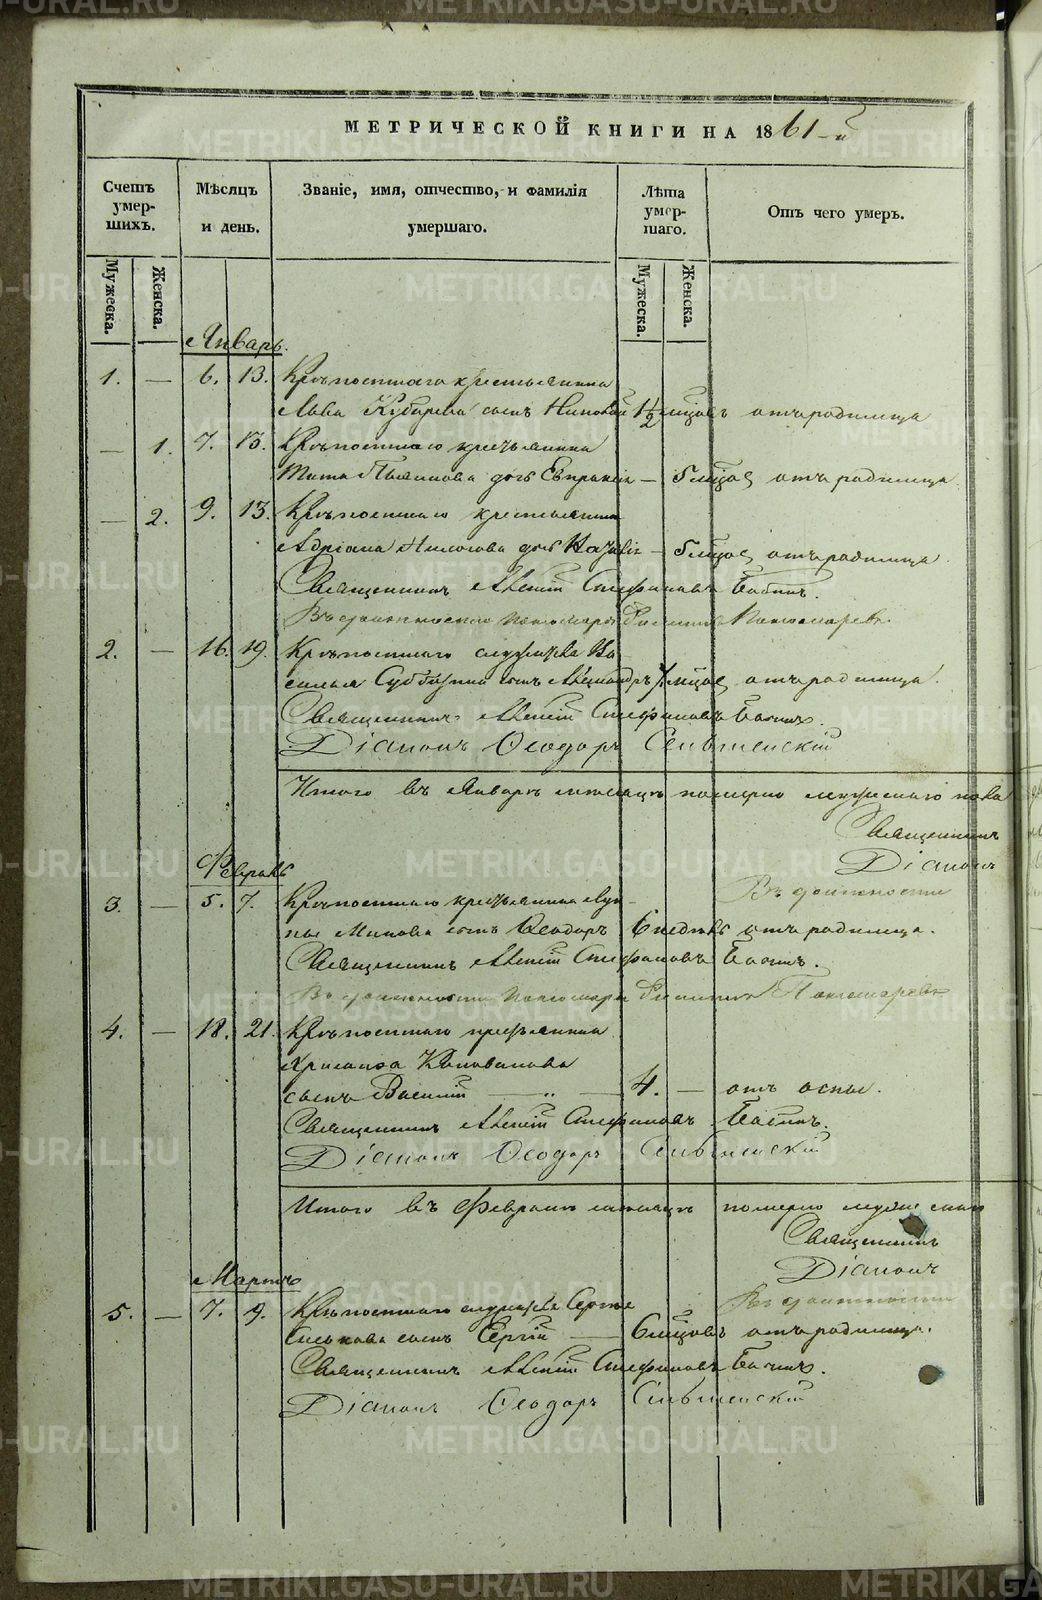 МЕТРИЧЕСКОЙ КНИГИ НА 1861-й
Счетъ умер-шихъ.
Мѣсяцъ и день.
Званіе, имя, отчество, и фамилія умершаго.
Лѣта умер-шаго.
Отъ чего умеръ.
Мужеска.
Женска.
Мужеска.
Женска.
Январь.
1. — 6. 13. Крѣпостнаго крестьянина
Льва сынъ 1½ мѣсяцъ отъ родимца
— 1. 7. 13. Крѣпостнаго крестьянина
Тита дочь Евпраксія — 5 мѣсяц отъ родимца.
— 2. 9. 13. Крѣпостнаго крестьянина
Адріана дочь — 5 мѣсяц отъ родимца.
Священникъ Алексій Стефановъ Бабинъ.
Въ должности пономаря Пономаревъ.
2. — 16. 19. Крѣпостнаго служителя Ва-
силья Субботина сынъ Александръ 7 мѣсяц отъ родимца.
Священникъ Алексій Стефановъ Бабинъ.
Діаконъ Ѳеодоръ Сильвинскій
Итого въ Январѣ мѣсяцѣ померло мужескаго пола
Священникъ
Діаконъ
Въ должности
Февраль
3. — 5. 7. Крѣпостнаго крестьянина
сынъ Ѳеодоръ 6 недѣль отъ родимца.
Священникъ Алексій Стефановъ Бабинъ.
Въ должности пономаря Пономаревъ
4. — 18. 21. Крѣпостнаго крестьянина
Хрисанѳа Коновалова
сынъ Василій — „ — 4. — отъ оспы.
Священникъ Алексій Стефановъ Бабинъ.
Діаконъ Ѳеодоръ Сильвинскій
Итого въ Февралѣ мѣсяцѣ померло мужескаго
Священникъ
Діаконъ
Въ должности
Мартъ
5. — 7. 9. Крѣпостнаго служителя Сергѣя
сынъ Сергій — 6 мѣсяцовъ отъ родимца.
Священникъ Алексій Стефановъ Бабинъ.
Діаконъ Ѳеодоръ Сильвинскій
METRIKI.GASO-URAL.RU